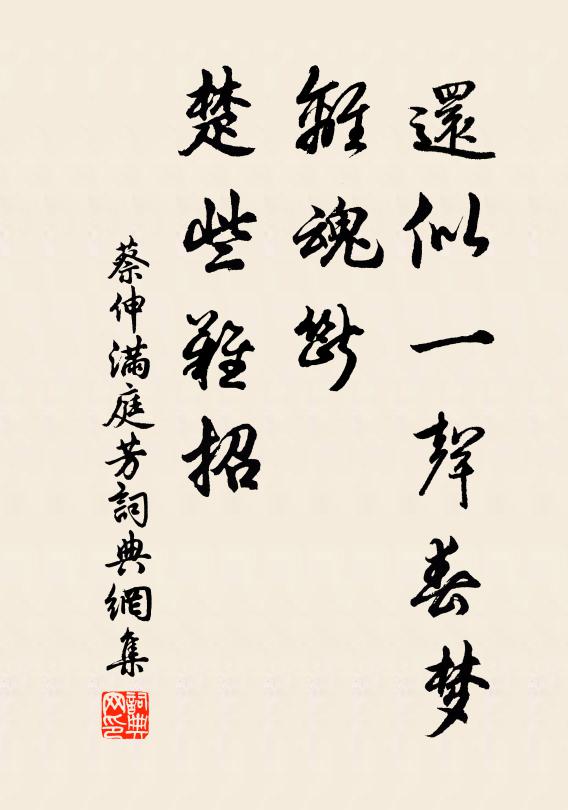 還似一聲春梦
離魂斷
楚些難招
蔡伸滿庭芳詞典網集
詞典网印